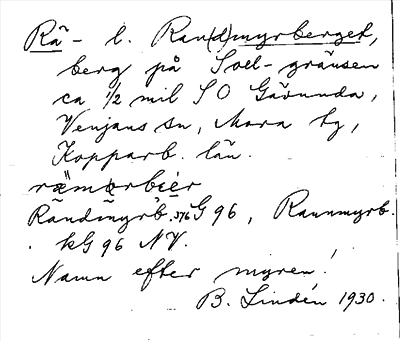 Rä- l. Ran(d)myrberget,
berg på Soll-gränsen
ca 1/2 mil S O Gävunda,
Venjans sn, Mora tg,
Kopparb. län.
Rändmyrb. G 96, Rannmyrb.
kG 96 NV.
Namn efter myren!
B. Lindén 1930.